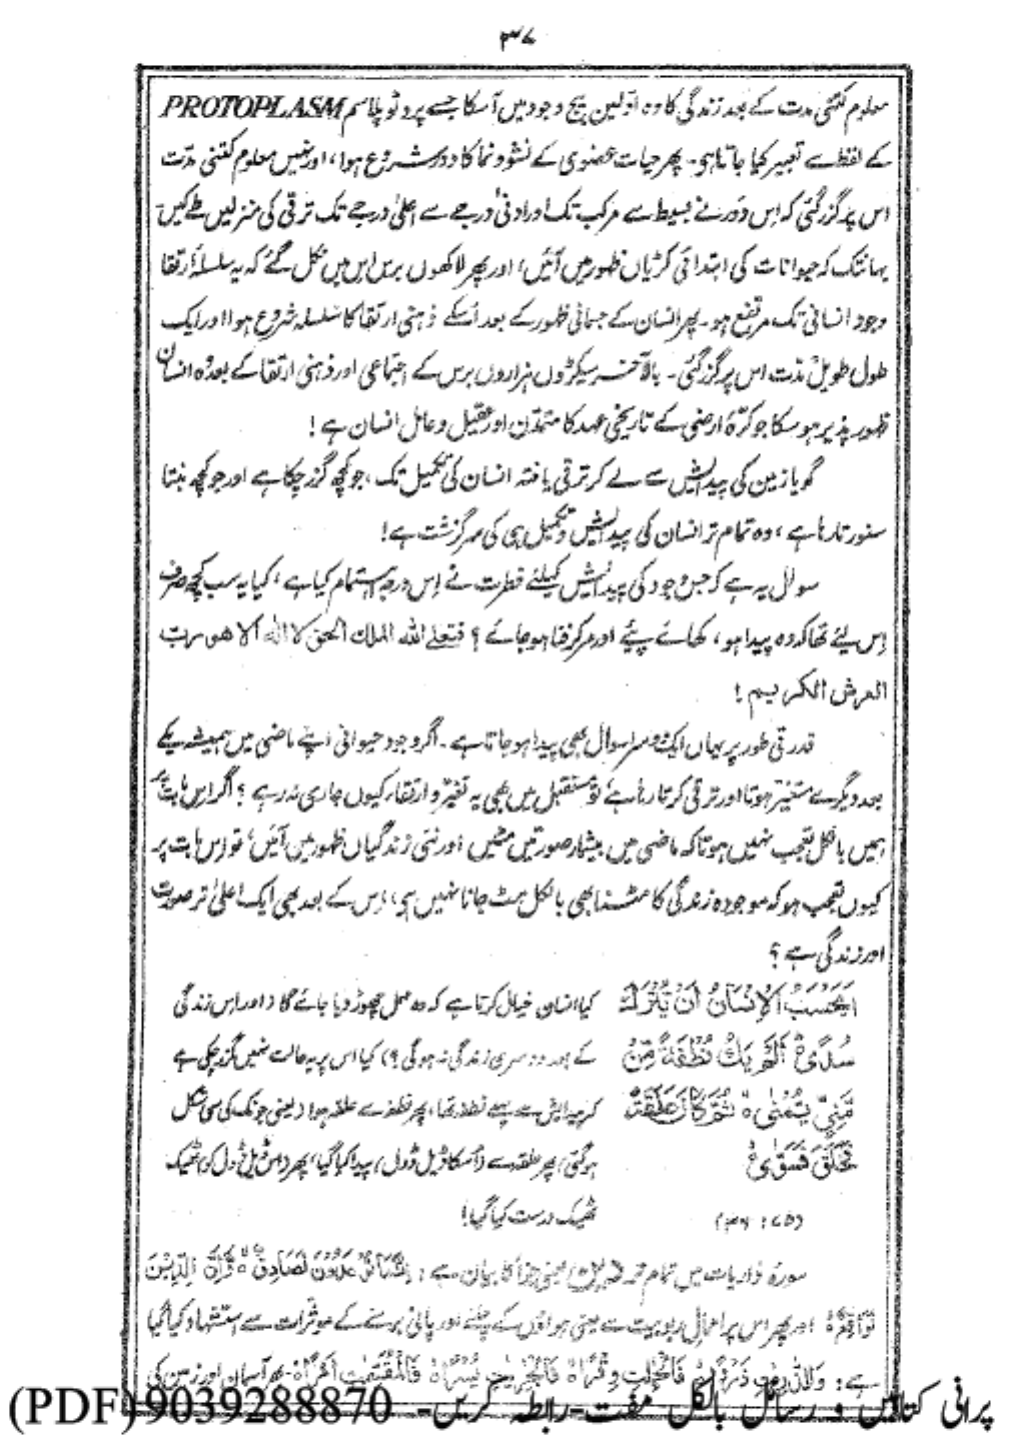 ۳۷
معلوم کتنی مدت کے بعد زندگی کا وہ اوّلین بیج وجود میں آسکا جسے پروٹوپلاسم PROTOPLASM
کے لفظ سے تعبیر کیا جاتا ہی۔ پھر حیات عضوی کے نشوونما کا دور شروع ہوا، اور نہیں معلوم کتنی مدّت
اس پر گزر گئی کہ اِس دَور نے بسیط سے مرکب تک اور ادنیٰ درجے سے اعلیٰ درجے تک ترقی کی منزلیں طے کیں۔
یہانتک کہ حیوانات کی ابتدائی کڑیاں ظہور میں آئیں، اور پھر لاکھوں برس اِس میں نکل گئے کہ یہ سلسلۂ ارتقا
وجود انسانی تک مرتفع ہو۔ پھر انسان کے جسمانی ظہور کے بعد اُسکے ذہنی ارتقا کا سلسلہ شروع ہوا اور ایک
طول طویل مدّت اس پر گزر گئی۔ بالآخر سیکڑوں ہزاروں برس کے اجتماعی اور ذہنی ارتقا کے بعد وُہ انسان
ظہور پذیر ہو سکا جو کرّۂ ارضی کے تاریخی عہد کا متمدّن اور عقیل و عامل انسان ہے!
گویا زمین کی پیدائش سے لے کر ترقی یافتہ انسان کی تکمیل تک، جو کچھ گزر چکا ہے اور جو کچھ بنتا
سنورتا رہا ہے، وہ تمام تر انسان کی پیدائش و تکمیل ہی کی سرگزشت ہے!
سوال یہ ہے کہ جس وجود کی پیدائش کیلئے فطرت نے اِس درجہ اہتمام کیا ہے، کیا یہ سب کچھ صرف
اِس لیئے تھا کہ وہ پیدا ہو، کھائے پیئے اور مر کر فنا ہو جائے؟ فتعلے الله الملك الحق لا اله الا هو رب
العرش الكريم!
قدرتی طور پر یہاں ایک دوسرا سوال بھی پیدا ہو جاتا ہے۔ اگر وجود حیوانی اپنے ماضی میں ہمیشہ یکے
بعد دیگرے متغیّر ہوتا اور ترقی کرتا رہا ہے، تو مستقبل میں بھی یہ تغیّر و ارتقاء کیوں جاری نہ رہے؟ اگر اِس بات پر
ہمیں بالکل تعجب نہیں ہوتا کہ ماضی میں بیشمار صورتیں مٹیں اور نئی زندگیاں ظہور میں آئیں، تو اِس بات پر
کیوں تعجب ہو کہ موجودہ زندگی کا مٹنا بھی بالکل مٹ جانا نہیں ہی، اِس کے بعد بھی ایک اعلیٰ تر صورت
اور زندگی ہے؟
اَيَحْسَبُ الْاِنْسَانُ اَنْ يُّتْرَكَ کیا انسان خیال کرتا ہے کہ وہ مہمل چھوڑ دیا جائے گا (اور اِس زندگی
سُدًى ۟ اَلَمْ يَكُ نُطْفَةً مِّنْ کے بعد دوسری زندگی نہ ہوگی؟) کیا اس پر یہ حالت نہیں گزر چکی ہے
مَّنِيٍّ يُّمْنٰى ۟ ثُمَّ كَانَ عَلَقَةً کہ پیدایش سے پہلے نطفہ تھا، پھر نطفہ سے علقہ ہوا (یعنی جونک کی سی شکل
فَخَلَقَ فَسَوّٰى ۟ ہوگئی) پھر علقہ سے (اُسکا ڈیل ڈول) پیدا کیا گیا، پھر (اس ڈیل ڈول کو) ٹھیک
(۷۵: ۳۶) ٹھیک درست کیا گیا!
سورۂ ذاریات میں تمام تر دین یعنی جزا کا بیان ہے: اِنَّمَا تُوْعَدُوْنَ لَصَادِقٌ ۟ وَّاِنَّ الدِّيْنَ
لَوَاقِعٌ ۟ اور پھر اس پر اعمالِ ربوبیت سے یعنی ہواؤں کے چلنے اور پانی برسنے کے موثرات سے استشہاد کیا گیا
ہے: وَالذّٰرِيٰتِ ذَرْوًا ۟ فَالْحٰمِلٰتِ وِقْرًا ۟ فَالْجٰرِيٰتِ يُسْرًا ۟ فَالْمُقَسِّمٰتِ اَمْرًا ۟ پھر آسمان اور زمین کی
پرانی کتابیں و رسائل بالکل مفت-رابطہ کریں- 9039288870 (PDF)